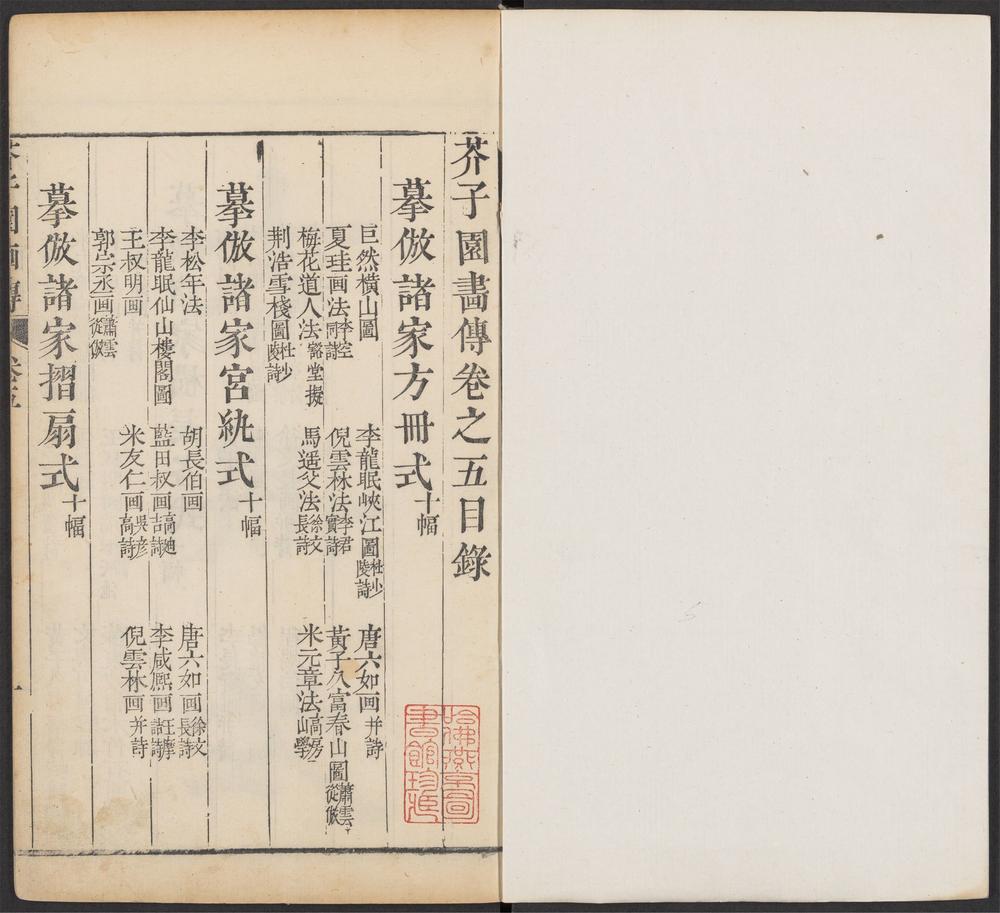 芥子園畵傳卷之五目錄
摹倣諸家方冊式十幅
巨然橫山圖 李龍眠峽江圖杜少陵詩 唐六如画并詩
夏珪画法李空同詩 倪雲林法李君實詩 黃子久富春山圖蕭雲從倣
梅花道人法谿堂擬 馬遥父法徐文長詩 米元章法高房山學
荆浩雪棧圖杜少陵詩
摹倣諸家宮紈式十幅
李松年法 胡長伯画 唐六如画徐文長詩
李龍眠仙山樓閣圖 藍田叔画高迪吉詩 李咸熙画王摩詰詩
王叔明画 米友仁画吳彥高詩 倪雲林画并詩
郭宗丞画蕭雲從倣
摹倣諸家摺扇式十幅
芥子園画傳 卷五 一
哈佛燕京圖書館珍藏